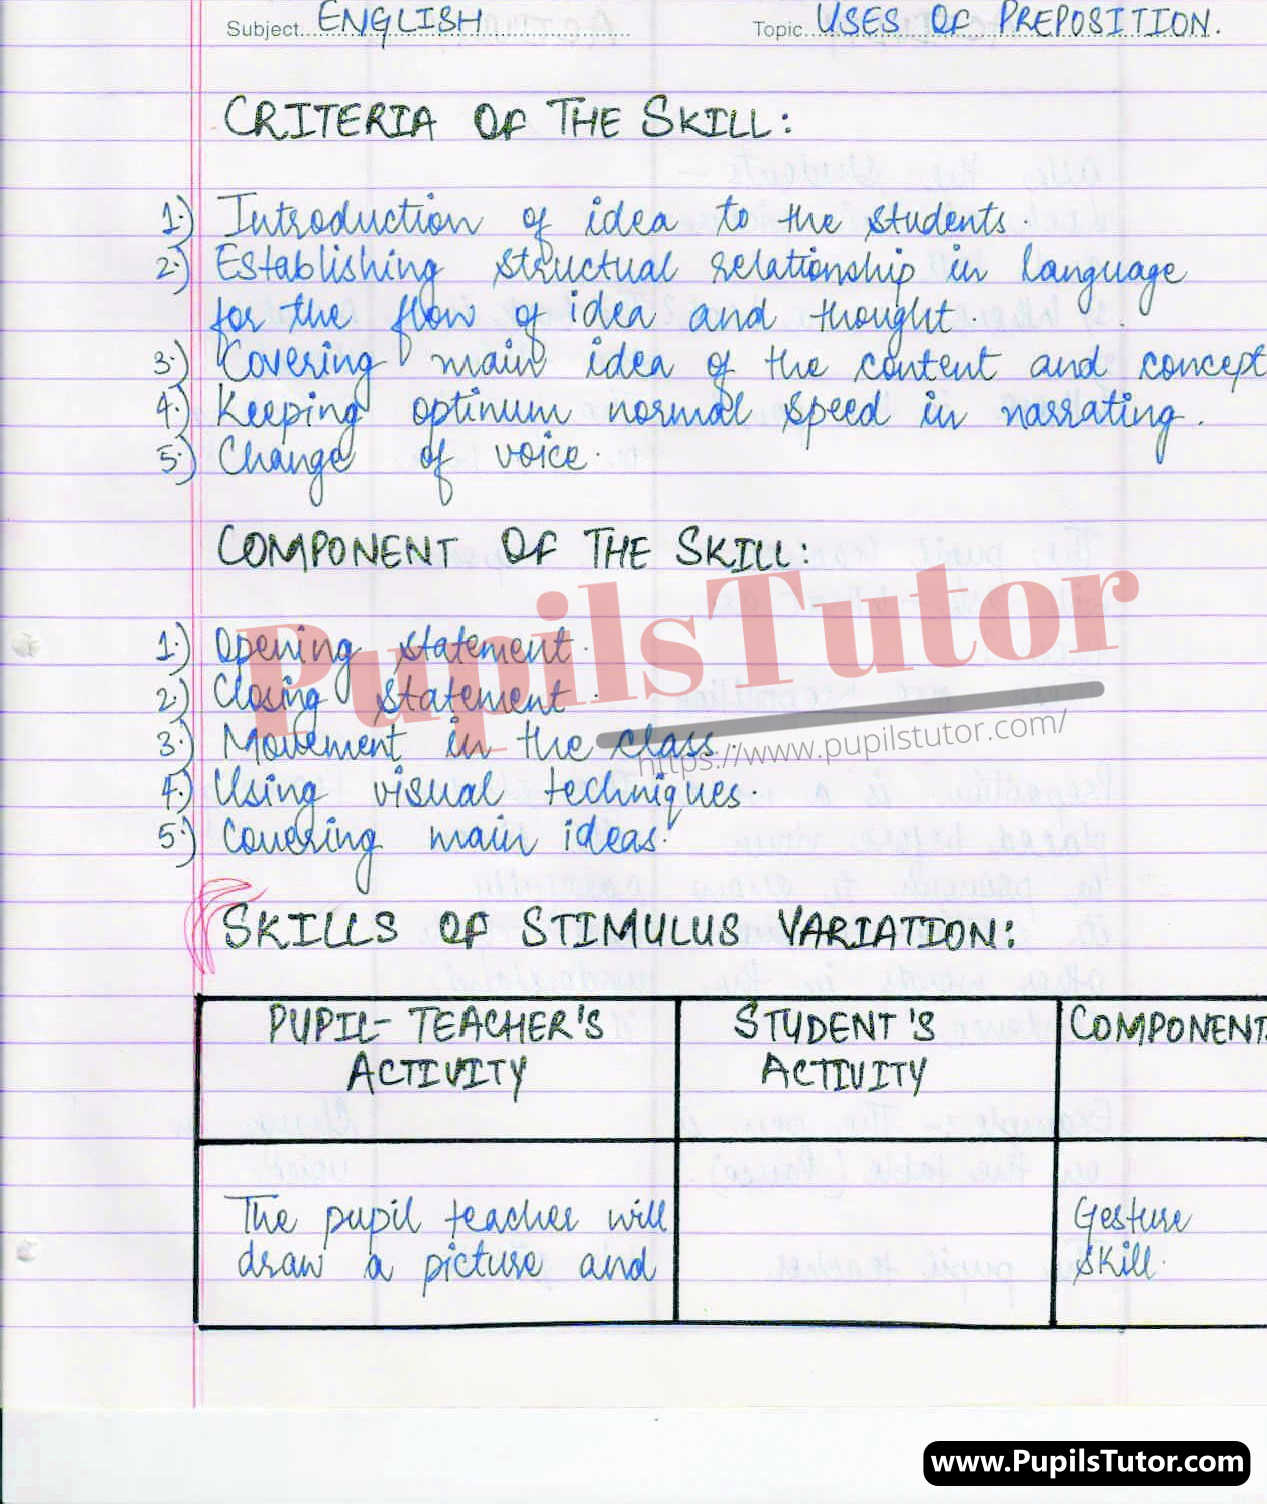 Subject ENGLISH Topic USES OF PREPOSITION.
CRITERIA OF THE SKILL:
1.) Introduction of idea to the students.
2.) Establishing structual relationship in language
for the flow of idea and thought.
3.) Covering main idea of the content and concept
4.) Keeping optinum normal speed in narrating.
5.) Change of voice.
COMPONENT OF THE SKILL:
PupilsTutor
1.) Opening statement.
2.) Closing statement.
3.) Movement in the class.
https://www.pupilstutor.com/
4.) Using visual techniques.
5.) Covering main ideas.
SKILLS OF STIMULUS VARIATION:
PUPIL-TEACHER'S STUDENT'S COMPONENT
ACTIVITY ACTIVITY
The pupil teacher will Gesture
draw a picture and skill.
www.PupilsTutor.com